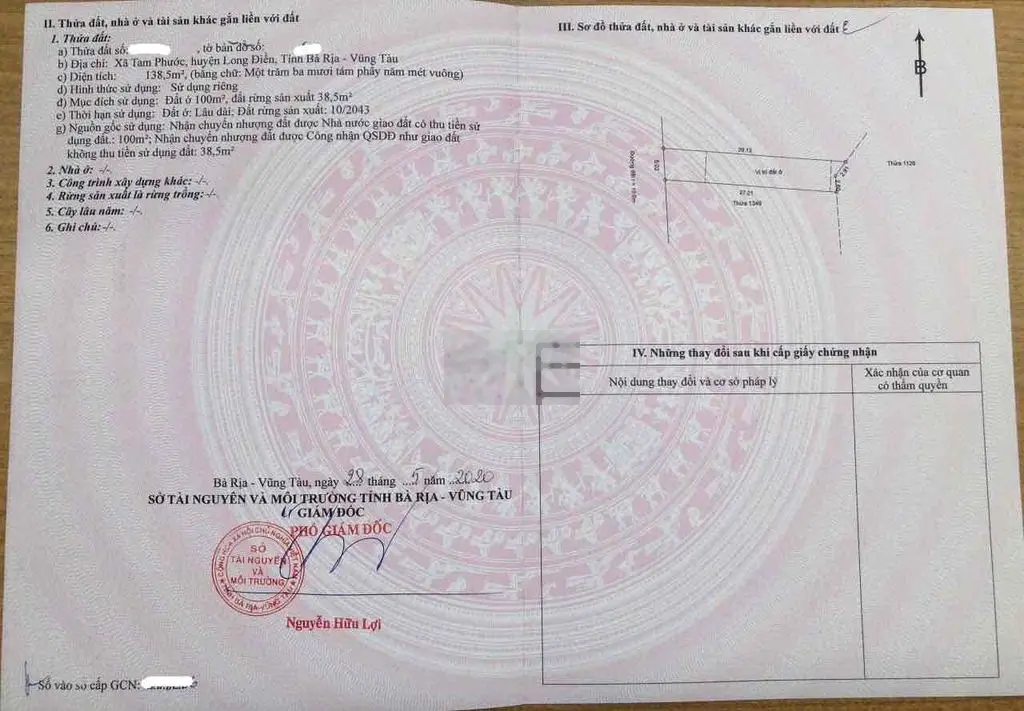 II. Thửa đất, nhà ở và tài sản khác gắn liền với đất
1. Thửa đất:
a) Thửa đất số: , tờ bản đồ số:
b) Địa chỉ: Xã Tam Phước, huyện Long Điền, Tỉnh Bà Rịa - Vũng Tàu
c) Diện tích: 138,5m², (bằng chữ: Một trăm ba mươi tám phẩy năm mét vuông)
d) Hình thức sử dụng: Sử dụng riêng
đ) Mục đích sử dụng: Đất ở 100m², đất rừng sản xuất 38,5m²
e) Thời hạn sử dụng: Đất ở: Lâu dài; Đất rừng sản xuất: 10/2043
g) Nguồn gốc sử dụng: Nhận chuyển nhượng đất được Nhà nước giao đất có thu tiền sử
dụng đất.: 100m²; Nhận chuyển nhượng đất được Công nhận QSDĐ như giao đất
không thu tiền sử dụng đất: 38,5m²
2. Nhà ở: -/-.
3. Công trình xây dựng khác: -/-.
4. Rừng sản xuất là rừng trồng: -/-.
5. Cây lâu năm: -/-.
6. Ghi chú: -/-.
Bà Rịa - Vũng Tàu, ngày 28 tháng ...5 năm ...2020
SỞ TÀI NGUYÊN VÀ MÔI TRƯỜNG TỈNH BÀ RỊA - VŨNG TÀU
GIÁM ĐỐC
PHÓ GIÁM ĐỐC
CỘNG HÒA XÃ HỘI CHỦ NGHĨA VIỆT NAM
SỞ
TÀI NGUYÊN
VÀ
MÔI TRƯỜNG
TỈNH BÀ RỊA-VŨNG TÀU
Nguyễn Hữu Lợi
Số vào sổ cấp GCN:
III. Sơ đồ thửa đất, nhà ở và tài sản khác gắn liền với đất
B
Thửa 1126
Vị trí đất ở
27.01
Thửa 1349
IV. Những thay đổi sau khi cấp giấy chứng nhận
Nội dung thay đổi và cơ sở pháp lý
Xác nhận của cơ quan
có thẩm quyền